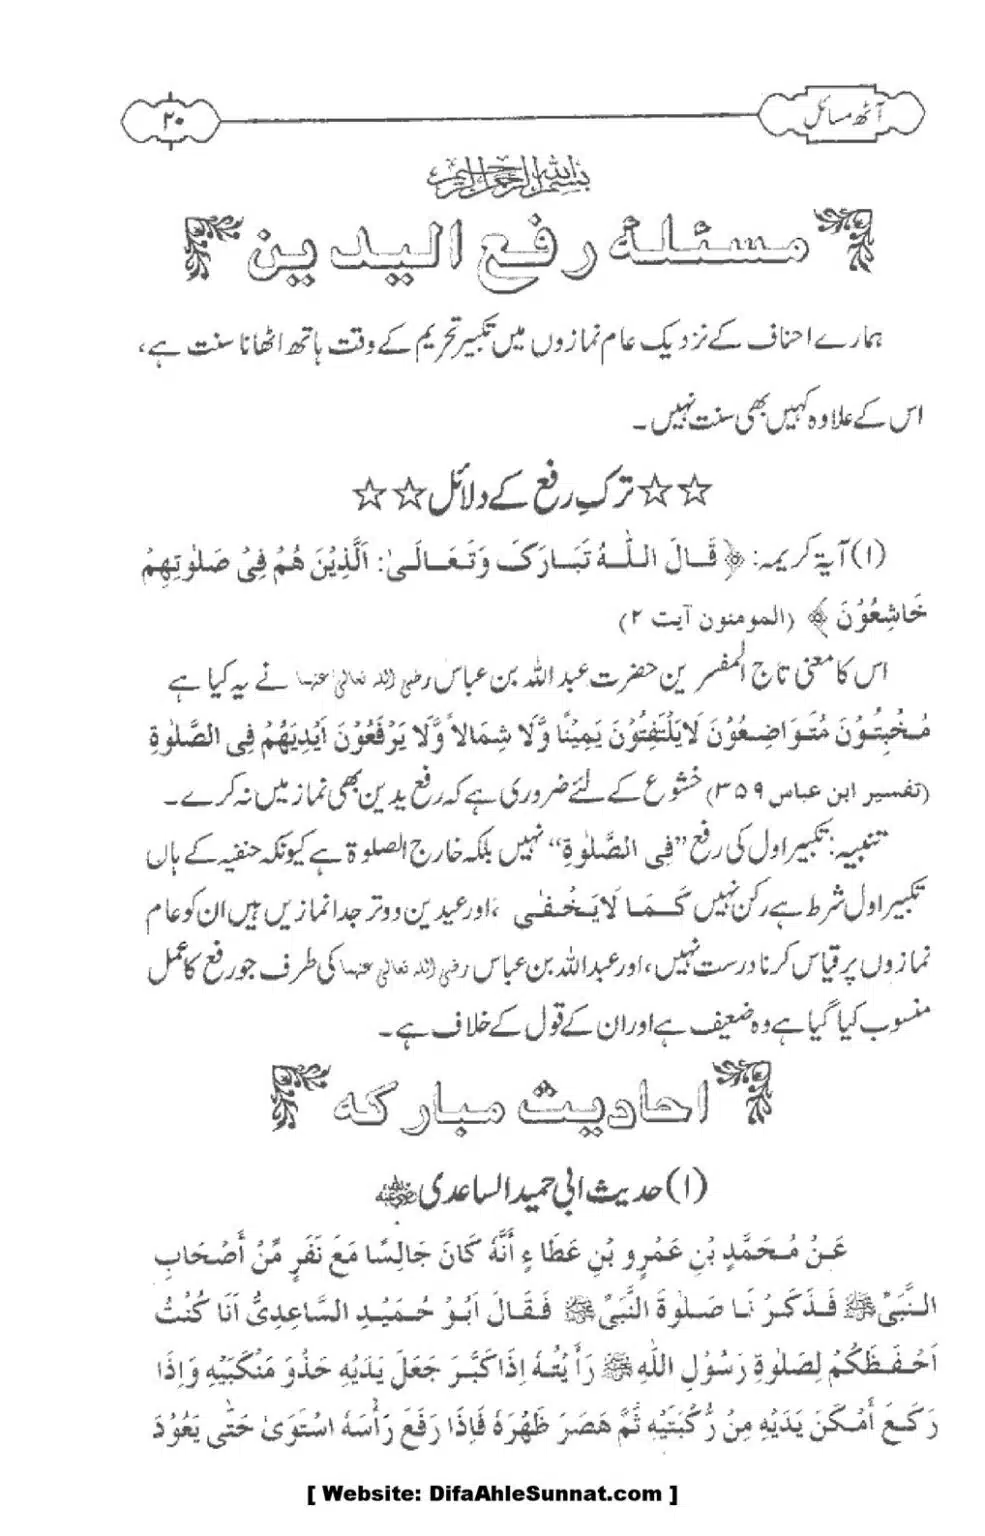 آٹھ مسائل
۲۰
بسم اللہ الرحمن الرحیم
مسئلۂ رفع الیدین
ہمارے احناف کے نزدیک عام نمازوں میں تکبیر تحریم کے وقت ہاتھ اٹھانا سنت ہے،
اس کے علاوہ کہیں بھی سنت نہیں۔
☆☆ترکِ رفع کے دلائل☆☆
(۱) آیۃ کریمہ: ﴿قَالَ اللّٰهُ تَبَارَكَ وَتَعَالیٰ: اَلَّذِیْنَ هُمْ فِیْ صَلٰوتِهِمْ
خَاشِعُوْنَ﴾ (المومنون آیت ۲)
اس کا معنی تاج المفسرین حضرت عبد اللہ بن عباس رضی اللہ تعالیٰ عنہما نے یہ کیا ہے
مُخْبِتُوْنَ مُتَوَاضِعُوْنَ لَایَلْتَفِتُوْنَ یَمِیْنًا وَّلَا شِمَالاً وَّلَا یَرْفَعُوْنَ اَیْدِیَهُمْ فِی الصَّلٰوةِ
(تفسیر ابن عباس ۳۵۹) خشوع کے لئے ضروری ہے کہ رفع یدین بھی نماز میں نہ کرے۔
تنبیہ: تکبیر اول کی رفع ”فِی الصَّلٰوةِ“ نہیں بلکہ خارج الصلوۃ ہے کیونکہ حنفیہ کے ہاں
تکبیر اول شرط ہے رکن نہیں کَمَا لَایَخْفٰی ،اور عیدین و وتر جدا نمازیں ہیں ان کو عام
نمازوں پر قیاس کرنا درست نہیں، اور عبد اللہ بن عباس رضی اللہ تعالیٰ عنہما کی طرف جو رفع کا عمل
منسوب کیا گیا ہے وہ ضعیف ہے اور ان کے قول کے خلاف ہے۔
احادیث مبارکہ
(۱) حدیث ابی حمید الساعدی رضی اللہ عنہ
عَنْ مُحَمَّدِ بْنِ عَمْرِو بْنِ عَطَاءٍ أَنَّهُ كَانَ جَالِسًا مَعَ نَفَرٍ مِّنْ أَصْحَابِ
النَّبِیِّ ﷺ فَذَكَرْنَا صَلٰوةَ النَّبِیِّ ﷺ فَقَالَ اَبُوْ حُمَیْدِ السَّاعِدِیُّ اَنَا كُنْتُ
اَحْفَظَكُمْ لِصَلٰوةِ رَسُوْلِ اللّٰهِ ﷺ رَأَیْتُهُ اِذَا كَبَّرَ جَعَلَ یَدَیْهِ حَذْوَ مَنْكَبَیْهِ وَاِذَا
رَكَعَ أَمْكَنَ یَدَیْهِ مِنْ رُّكْبَتَیْهِ ثُمَّ هَصَرَ ظَهْرَهٗ فَاِذَا رَفَعَ رَأْسَهٗ اسْتَوَیٰ حَتّٰی یَعُوْدَ
[ Website: DifaAhleSunnat.com ]